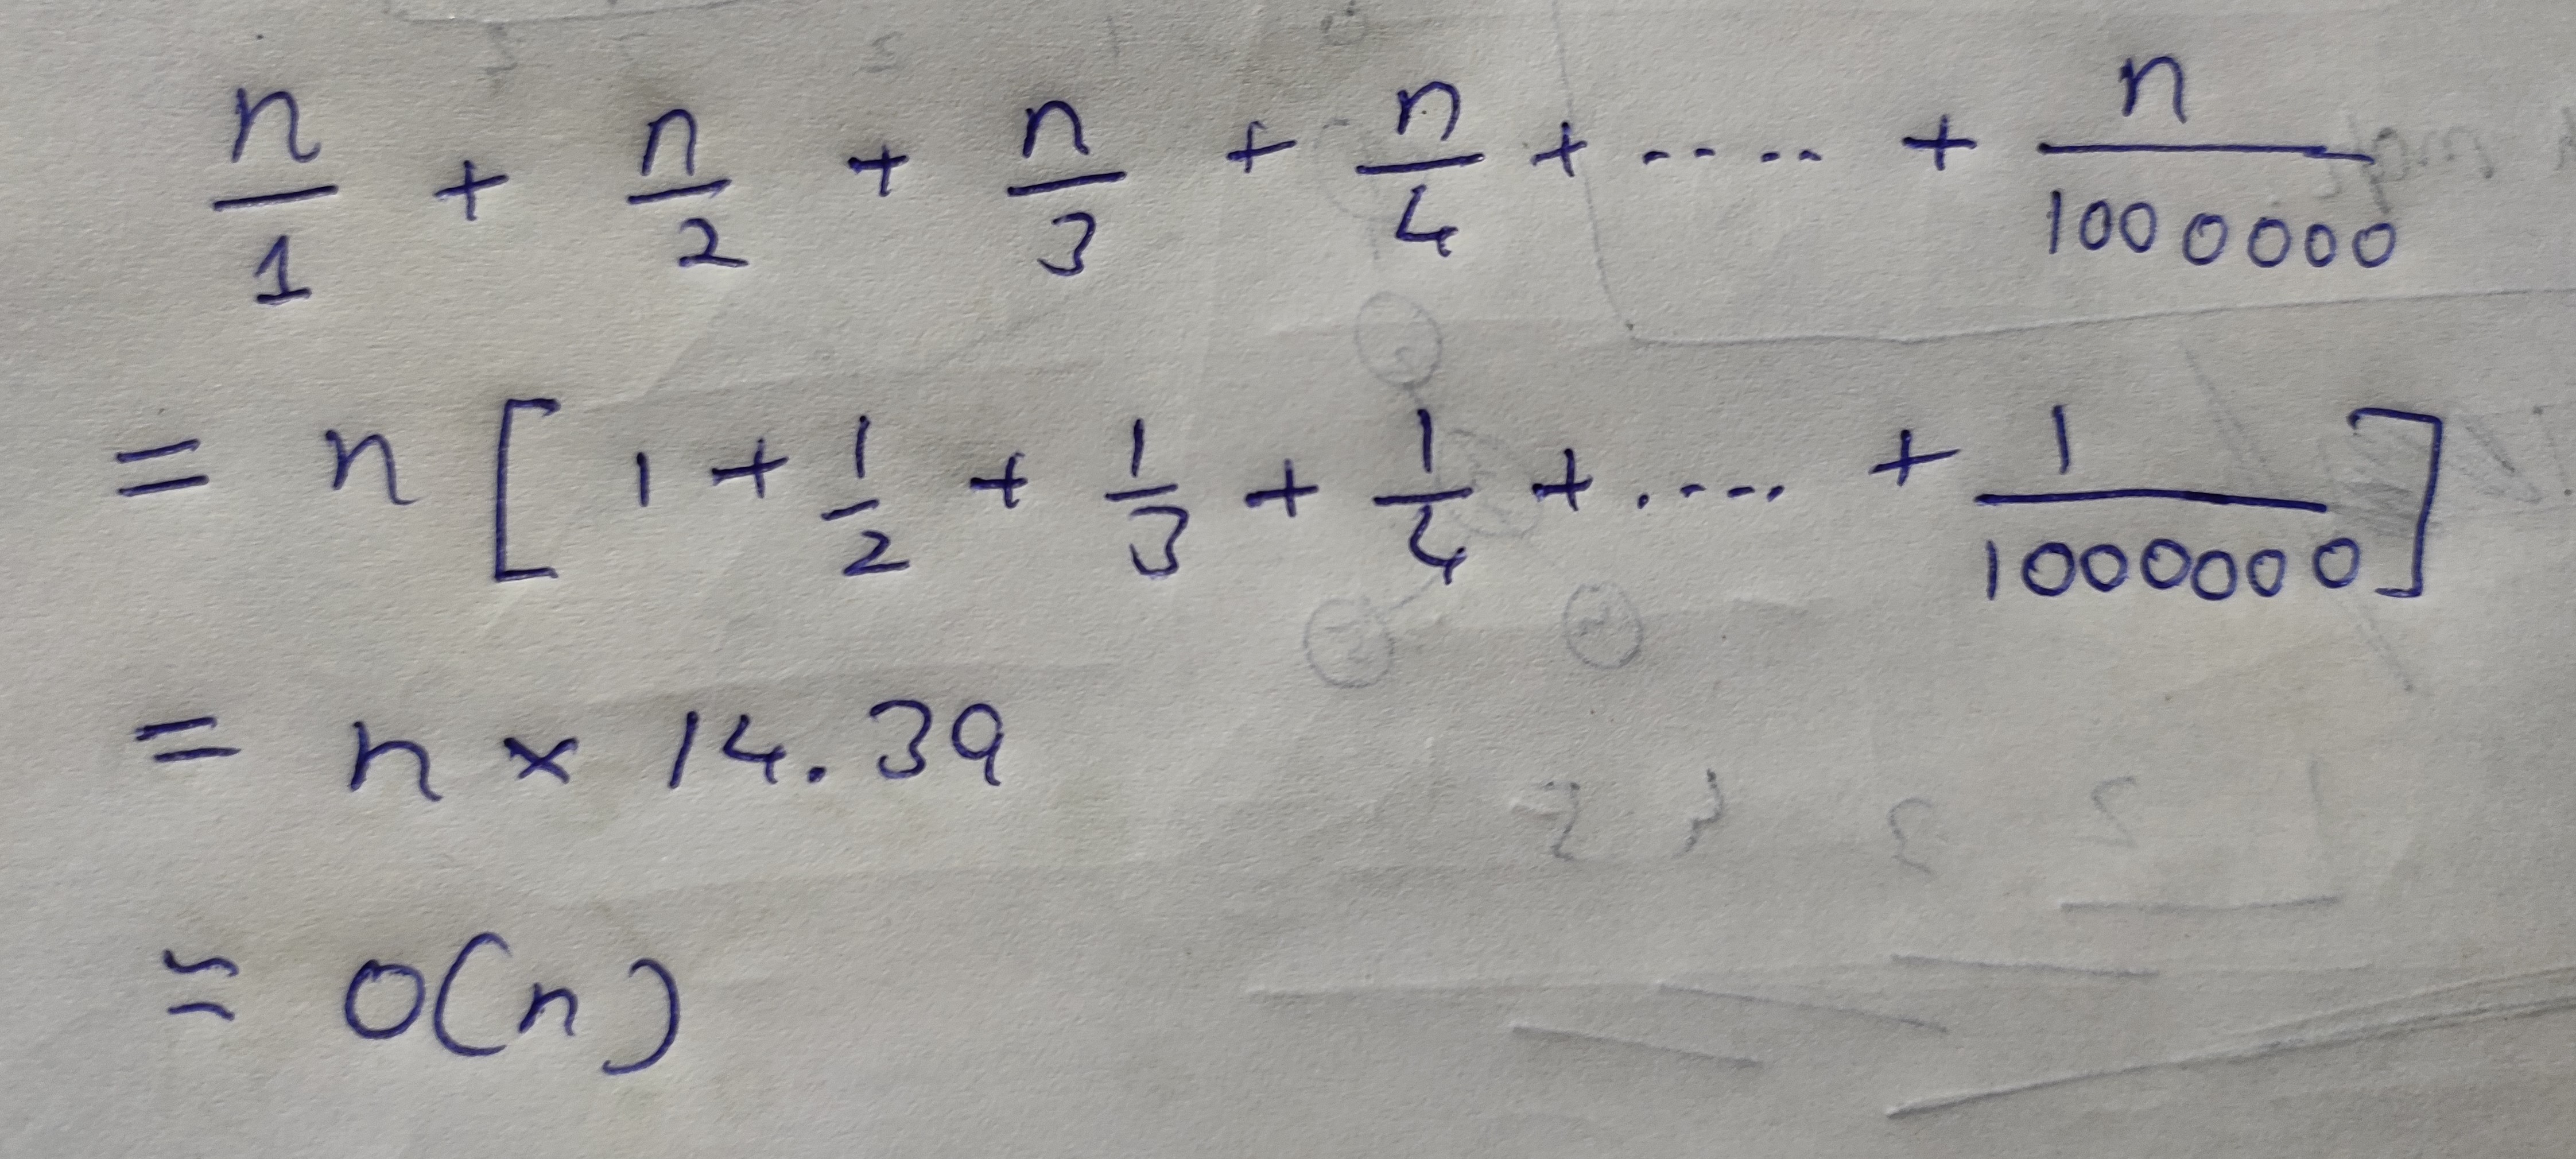 n/1 + n/2 + n/3 + n/4 + ---- + n/1000000
= n [ 1 + 1/2 + 1/3 + 1/4 + .--- + 1/1000000 ]
= n × 14.39
≈ O(n)